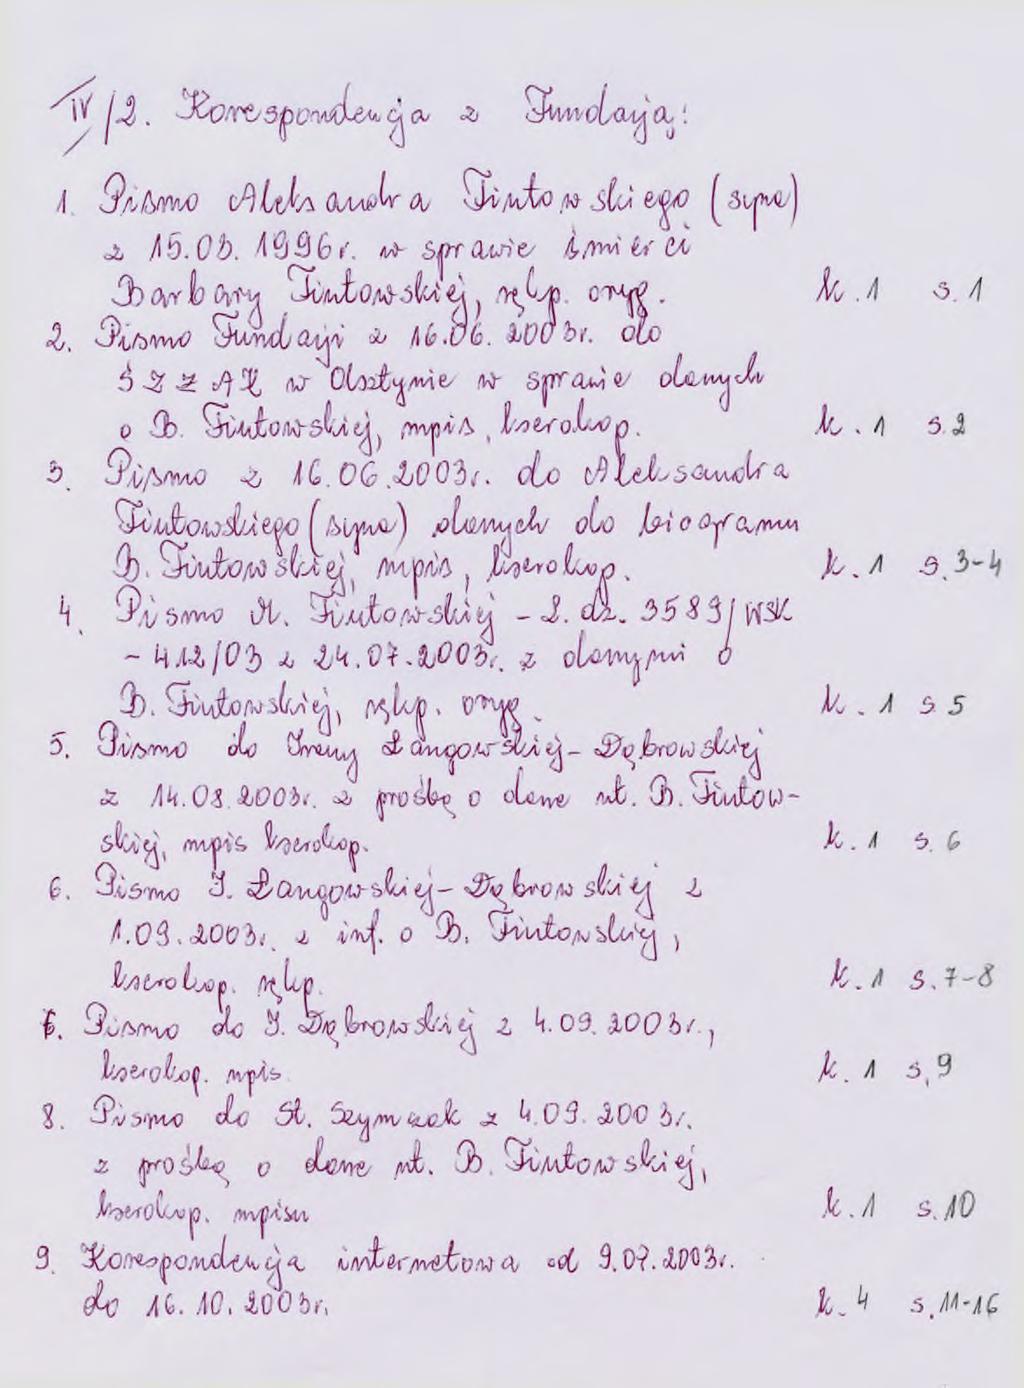 IV/2. Korespondencja z Fundacją:
1. Pismo Aleksandra Fiutowskiego (syna)
z 15.03.1996r. w sprawie śmierci
Barbary Fiutowskiej, rękp. oryg. k.1 s.1
2. Pismo Fundacji z 16.06.2003r. do
ŚZŻAK w Olsztynie w sprawie danych
o B. Fiutowskiej, mpis, kserokop. k.1 s.2
3. Pismo z 16.06.2003r. do Aleksandra
Fiutowskiego (syna) danych do biogramu
B. Fiutowskiej, mpis, kserokop. k.1 s.3-4
4. Pismo M. Fiutowskiej - L. dz. 3589/WSK
- 412/03 z 24.07.2003r. z danymi o
B. Fiutowskiej, rękp. oryg. k.1 s.5
5. Pismo do Ireny Łangowskiej-Dąbrowskiej
z 14.08.2003r. z prośbą o dane nt. B. Fiutow-
skiej, mpis kserokop. k.1 s.6
6. Pismo I. Łangowskiej-Dąbrowskiej z
1.09.2003r. z inf. o B. Fiutowskiej,
kserokop. rękp. k.1 s.7-8
7. Pismo do I. Dąbrowskiej z 4.09.2003r.,
kserokop. mpis k.1 s.9
8. Pismo do St. Szymczak z 4.09.2003r.
z prośbą o dane nt. B. Fiutowskiej,
kserokop. mpisu k.1 s.10
9. Korespondencja internetowa od 9.07.2003r.
do 16.10.2003r. k.4 s.11-16